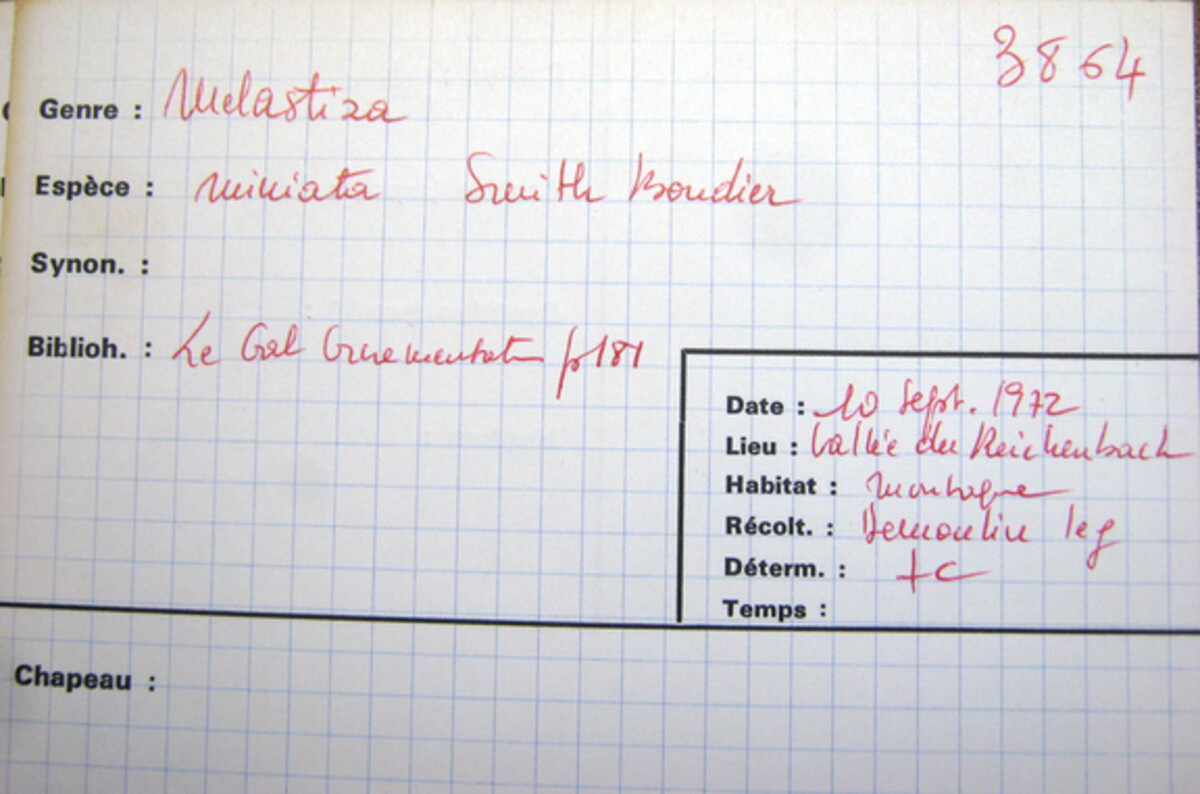 3864
Genre : Melastiza
Espèce : miniata Smith Boudier
Synon. :
Biblioh. : Le Gal Ornementation p 181
Date : 10 Sept. 1972
Lieu : Vallée du Reichenbach
Habitat : montagne
Récolt. : Demoulin leg
Déterm. :
Temps :
Chapeau :